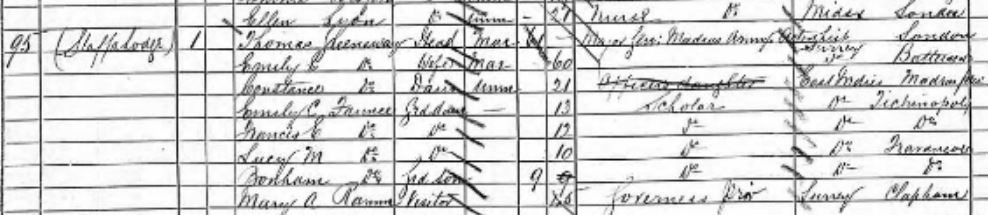 Ellen Lyon do unm - 21 Nurse do Middx London
95 (Staffa Lodge) 1 Thomas Greenaway Head Mar Major Gen. Madras Army London
Emily C do Wife Mar 60 Surrey Battersea
Constance do Daur unm 21 Officer's daughter East Indies Madras
Emily C Grd daur — 13 Scholar do Tichinopoly
Francis E do do 12 do do do
Lucy M do do 10 do do Travancore
Bonham do Grd son 9 do do do
Mary A Visitor Governess Surrey Clapham